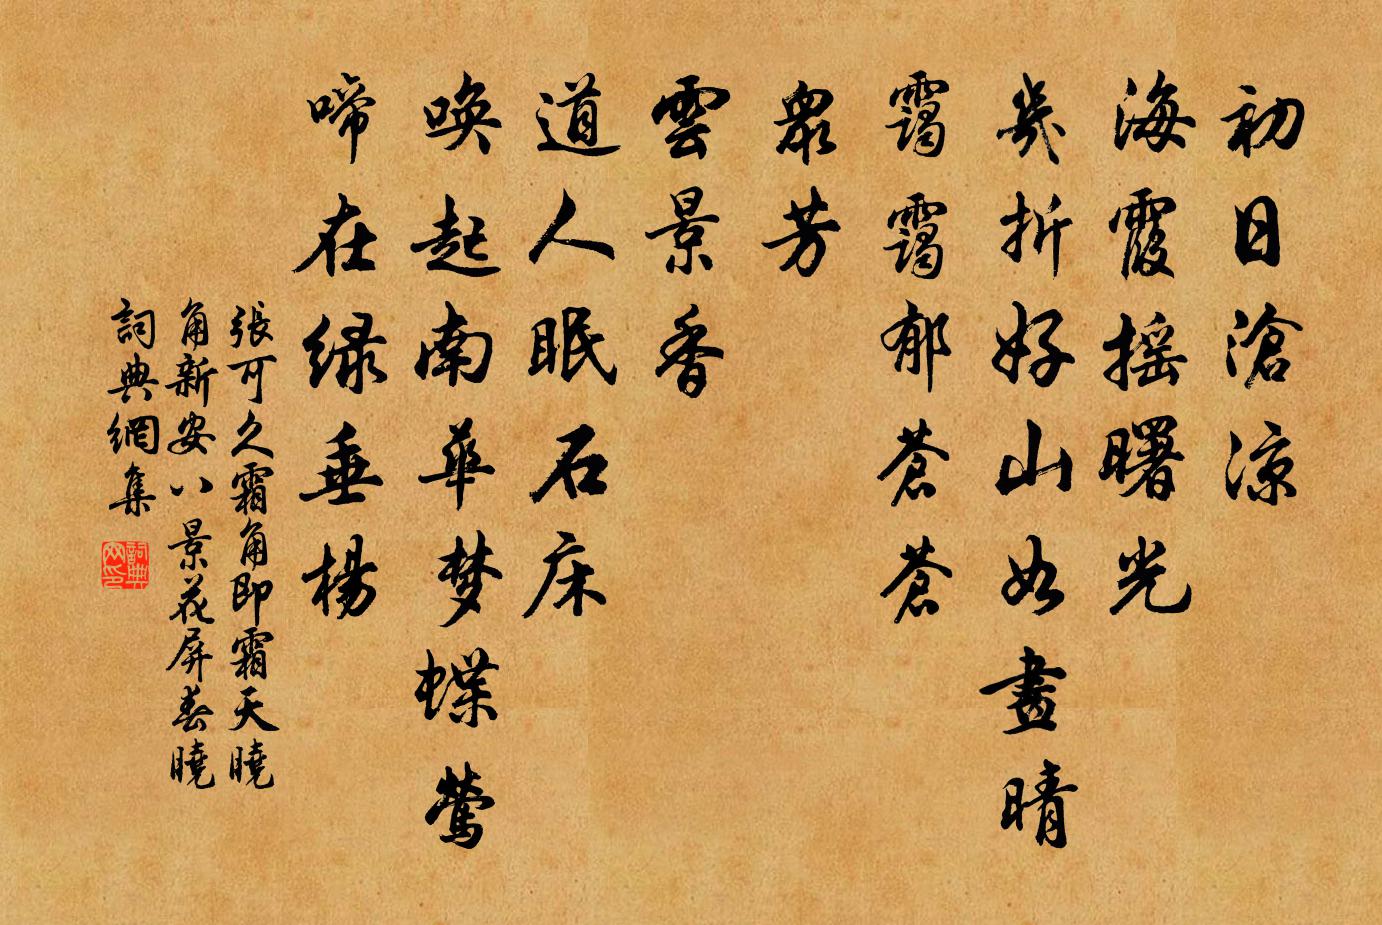 初日滄涼
海霞摇曙光
幾折好山如畫晴
靄靄郁蒼蒼
眾芳
雲景香
道人眠石床
喚起南華梦蝶鶯
啼在绿垂楊
張可久霜角即霜天曉
角新安八景花屏春曉
詞典網集
詞典
网印